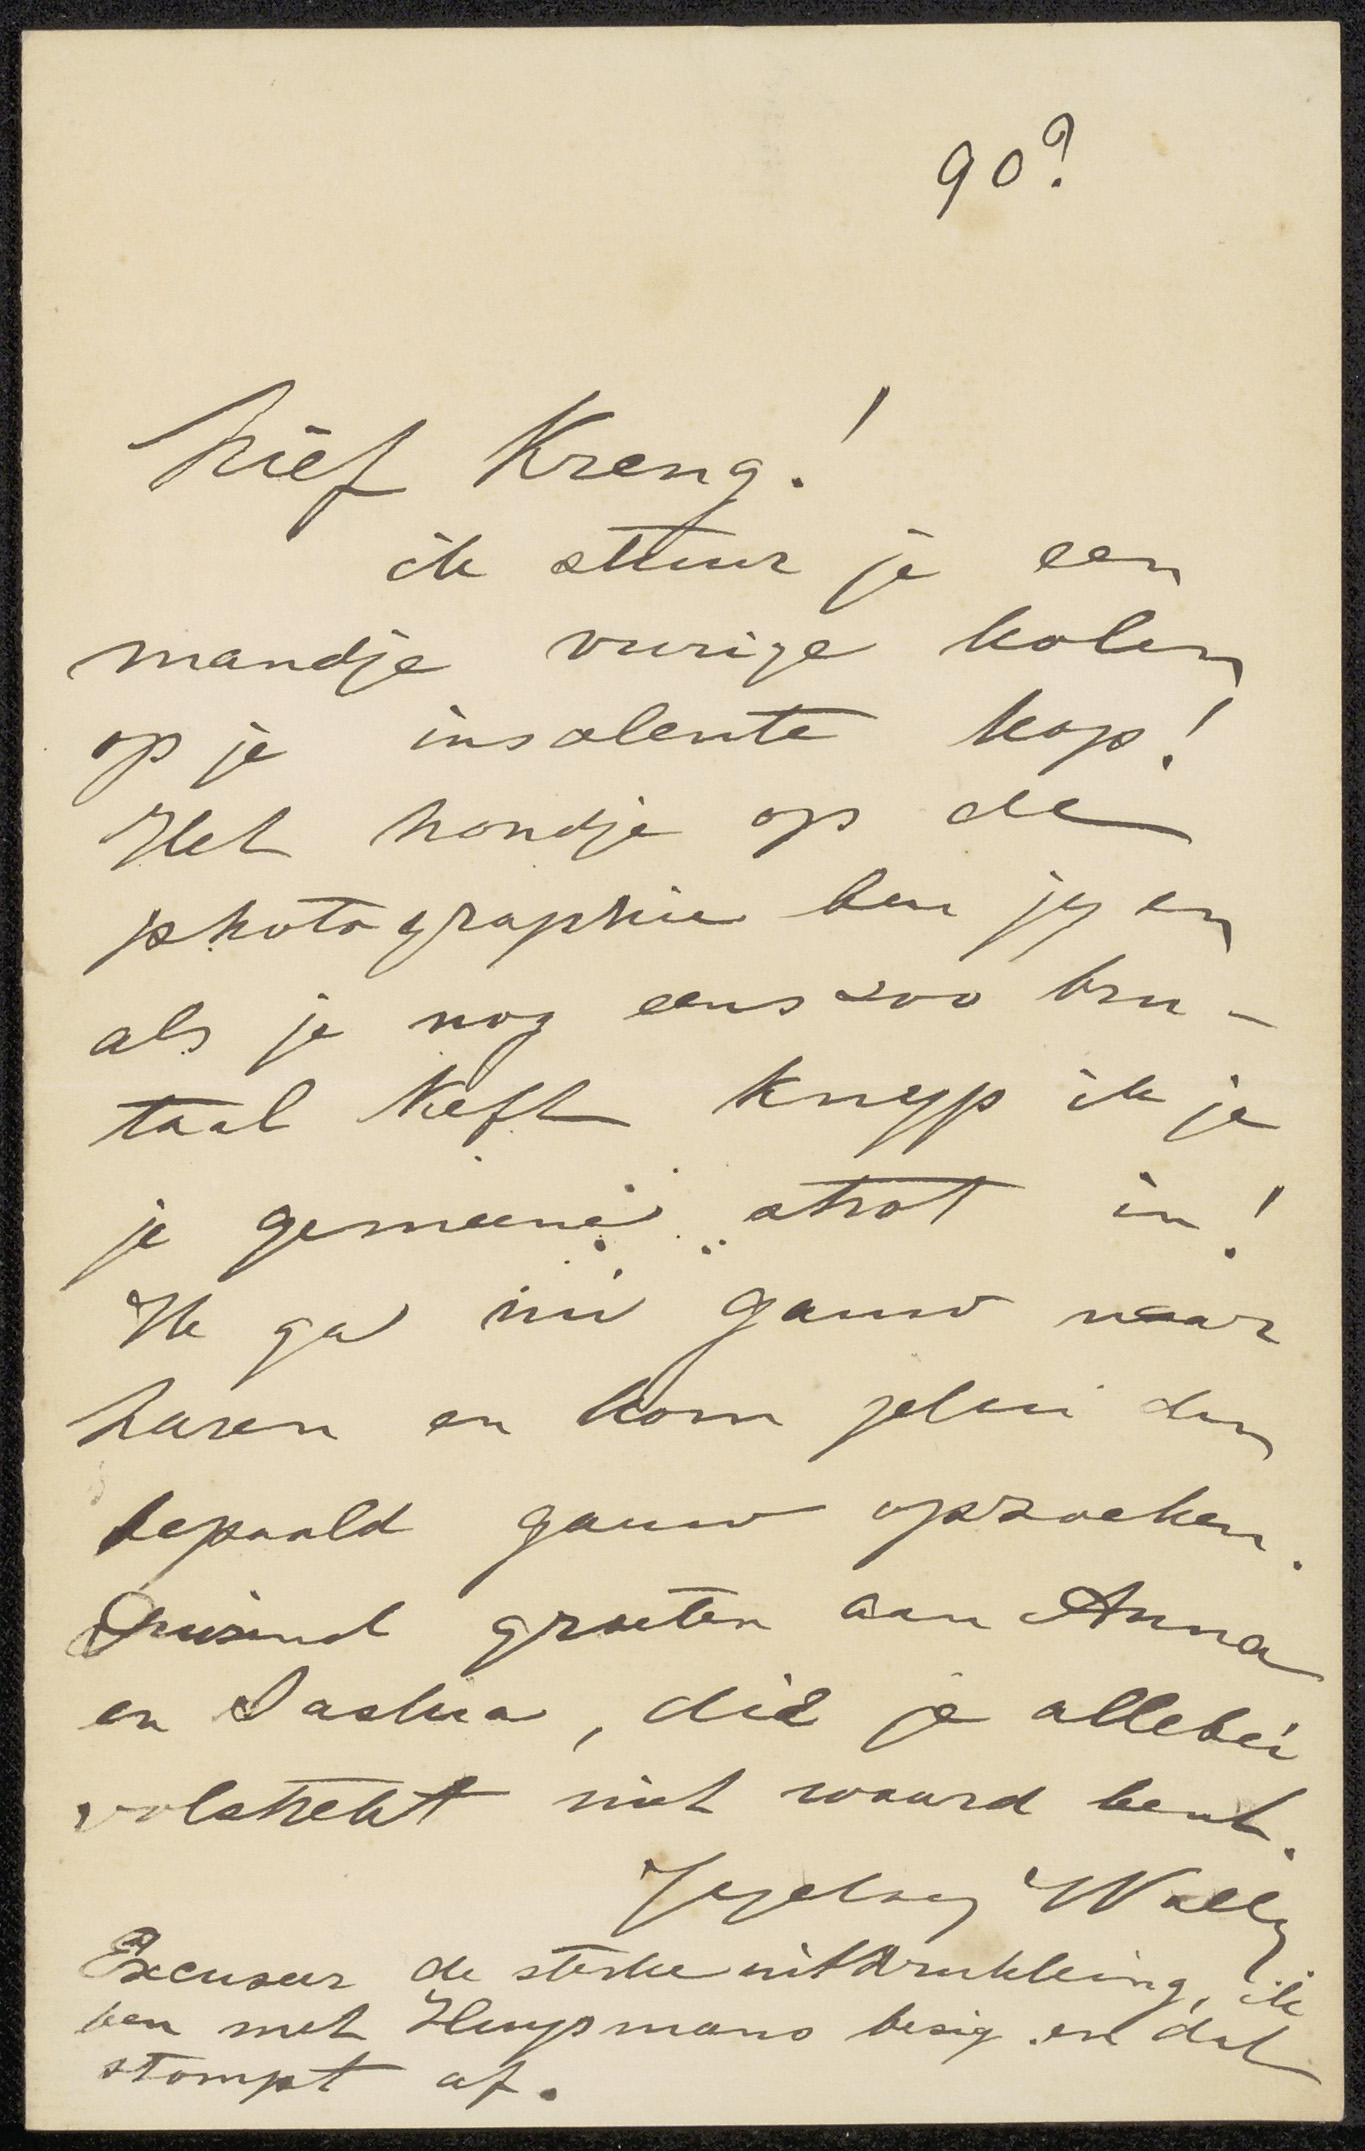 90?
Lief Kreng!
ik stuur je een
mandje vurige kolen
op je insolente kop!
Het hondje op de
photographie ben jij en
als je nog eens zoo bru-
taal keft knijp ik je
je gemeene strot in!
Ik ga nu gauw naar
Laren en kom jelui dan
bepaald gauw opzoeken.
Duizend groeten aan Anna
en Saskia, die je allebei
volstrekt niet waard bent.
Wally
Excuseer de sterke uitdrukking, ik
ben met Huysmans bezig en dat
stompt af.